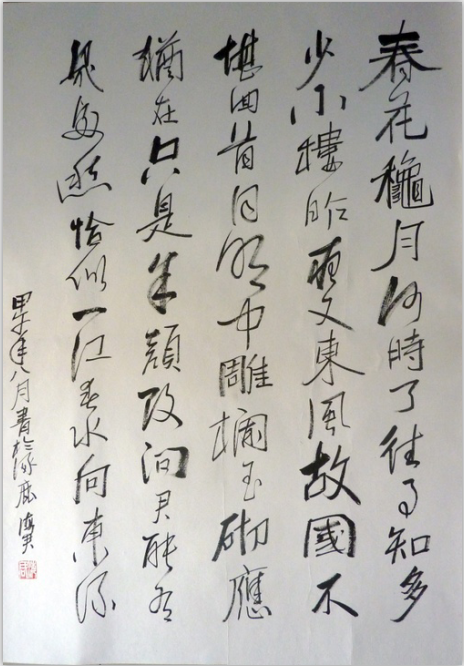 春花穐月何時了往事知多
少小樓昨夜又東風故國不
堪回首月明中雕欄玉砌應
猶在只是朱顏改問君能有
幾多愁恰似一江春水向東流
甲午年八月書於